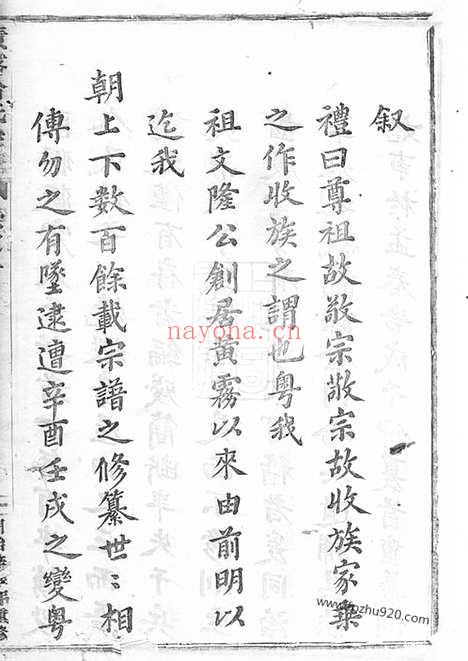 叙
禮曰尊祖故敬宗敬宗故收族家乗
之作收族之謂也粤我
祖文隆公創居黄霧以來由前明以
迄我
朝上下數百餘載宗譜之修纂世〻相
傳勿之有墜逮遭辛酉壬戌之變粤
nayona.cn
pzhu920.com